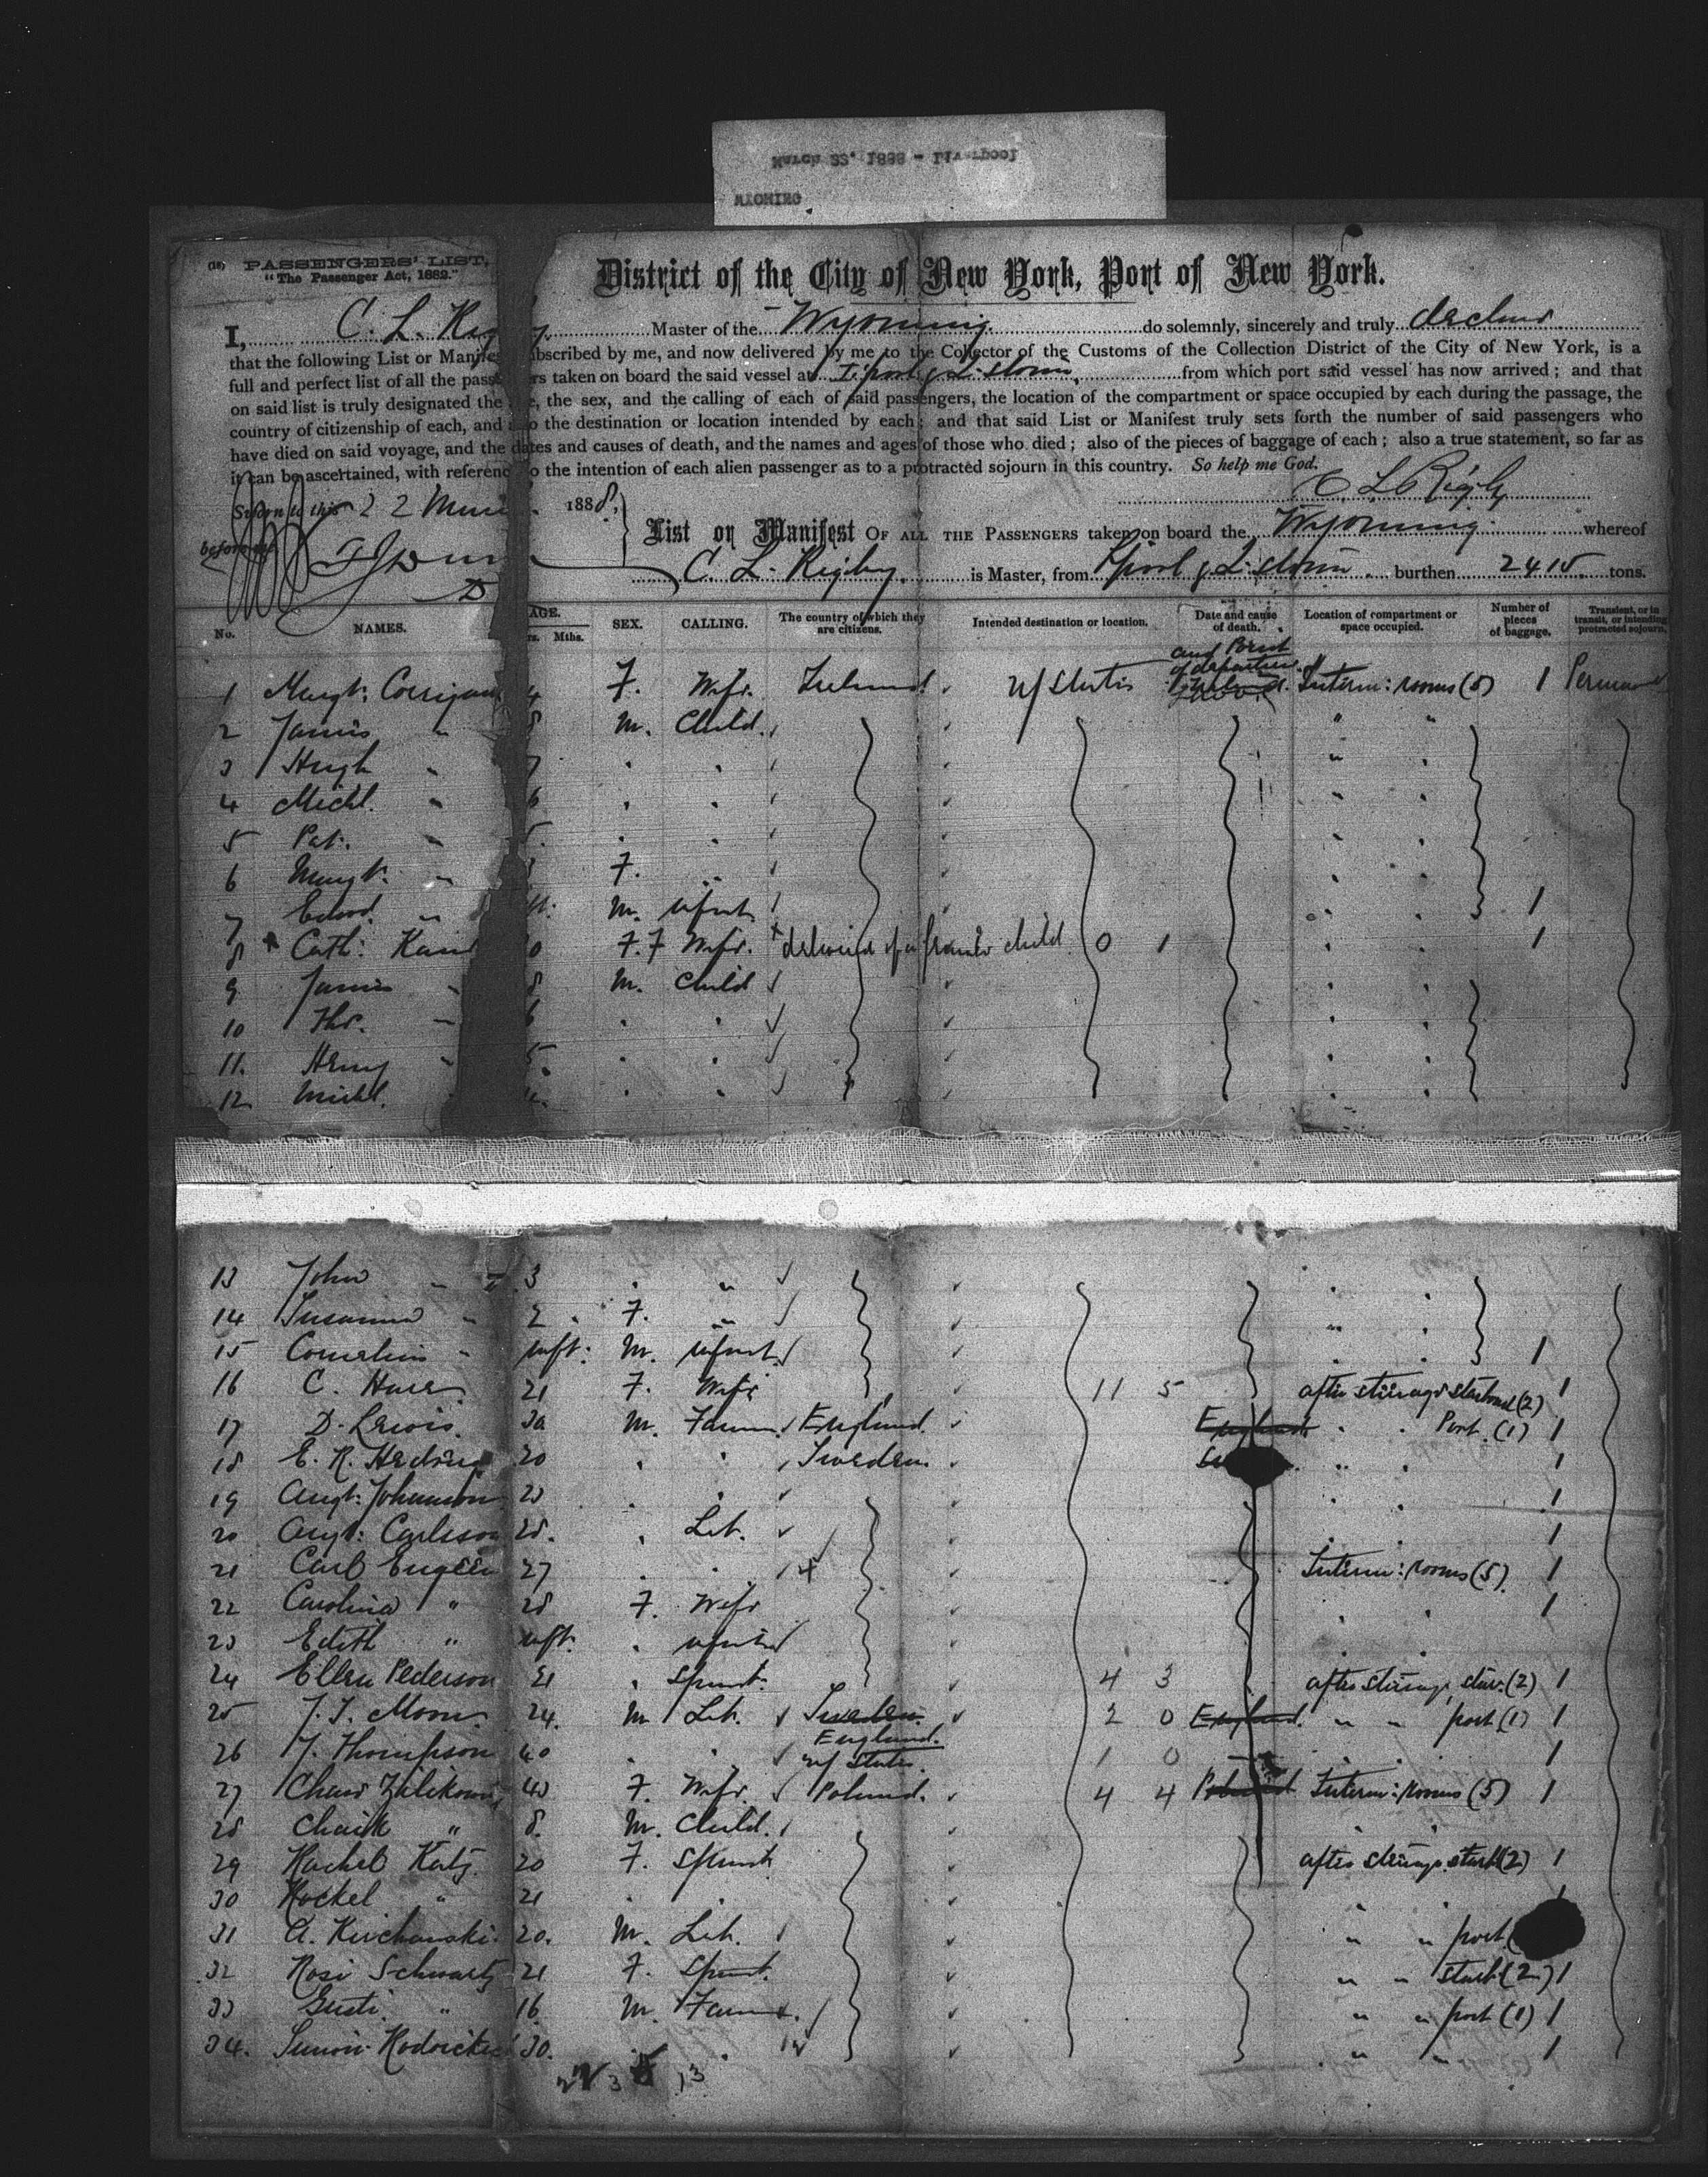 March 22, 1888 - Liverpool
WYOMING
(18) PASSENGERS' LIST,
"The Passenger Act, 1882."
District of the City of New York, Port of New York.
I, C. L. Rigby Master of the Wyoming do solemnly, sincerely and truly declare
that the following List or Manifest subscribed by me, and now delivered by me to the Collector of the Customs of the Collection District of the City of New York, is a
full and perfect list of all the passengers taken on board the said vessel at L'pool & Q. stown, from which port said vessel has now arrived; and that
on said list is truly designated the age, the sex, and the calling of each of said passengers, the location of the compartment or space occupied by each during the passage, the
country of citizenship of each, and also the destination or location intended by each; and that said List or Manifest truly sets forth the number of said passengers who
have died on said voyage, and the dates and causes of death, and the names and ages of those who died; also of the pieces of baggage of each; also a true statement, so far as
it can be ascertained, with reference to the intention of each alien passenger as to a protracted sojourn in this country. So help me God.
C L Rigby
Sworn to this 22 1888,
before me
List or Manifest OF ALL THE PASSENGERS taken on board the Wyoming whereof
C. L. Rigby is Master, from L'pool & Q. stown burthen 2415 tons.
No. NAMES. AGE. Mths. SEX. CALLING. The country of which they are citizens. Intended destination or location. Date and cause of death. Location of compartment or space occupied. Number of pieces of baggage. Transient, or in transit, or intending protracted sojourn.
and Port of departure
1 Margt. Corrigan 4 F. Wife. Ireland U/States Interm: rooms (5) 1
2 James " 8 M. Child. " "
3 Hugh " 7 " " " "
4 Michl. " 6 " " " "
5 Pat. " 5 " " " "
6 Margt. " F. " " "
7 Edwd. " M. Infant " " 1
8 Cath: 0 F. F Wife. x delivered of a female child 0 1 " " 1
9 James " 8 M. Child " "
10 Thos. " 6 " " " "
11. Henry " 5 " " " "
12 Michl. " " " " "
13 John " 3 " " " "
14 Susanna " 2 F. " " "
15 Cornelius " inft: M. infant " " 1
16 C. 21 F. Wife 11 5 after steerage starboard (2) 1
17 D. Lewis. 30 M. Farm. England England " " Port. (1) 1
18 E. R. 20 " " Sweden " " 1
19 Augt: Johansson " " " " 1
20 Augt: Carlsson 28. " Lab. " " 1
21 Carl 27 " " Interm: rooms (5). 1
22 Carolina " 28 F. Wife " " 1
23 Edith " inft: " infant " "
24 Ellen Pederson 21 " Spinst. 4 3 after steerage star. (2) 1
25 J. J. Moon 24. M Lab. Sweden. England. 2 0 England. " " port (1) 1
26 J. Thompson 40 " " U/States. 1 0 " " 1
27 F. Wife. Poland. 4 4 Poland Interm: rooms (5) 1
28 " 8. M. Child. " "
29 Rachel Katz. 20 F. Spinst after steerage starb (2) 1
30 Rockel " 21 " " " " 1
31 A. Kirchanski. 20. M. Lab. " " port
32 Rosi Schwartz 21 F. Spinst. " " starb (2) 1
33 Gusti " 16 M. Farm. " " port (1) 1
34. Simon 30. " " " " 1